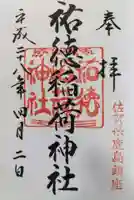 奉拝
佐賀県鹿島鎮座
祐徳稲荷神社
祐徳
神社
平成二八年四月二日